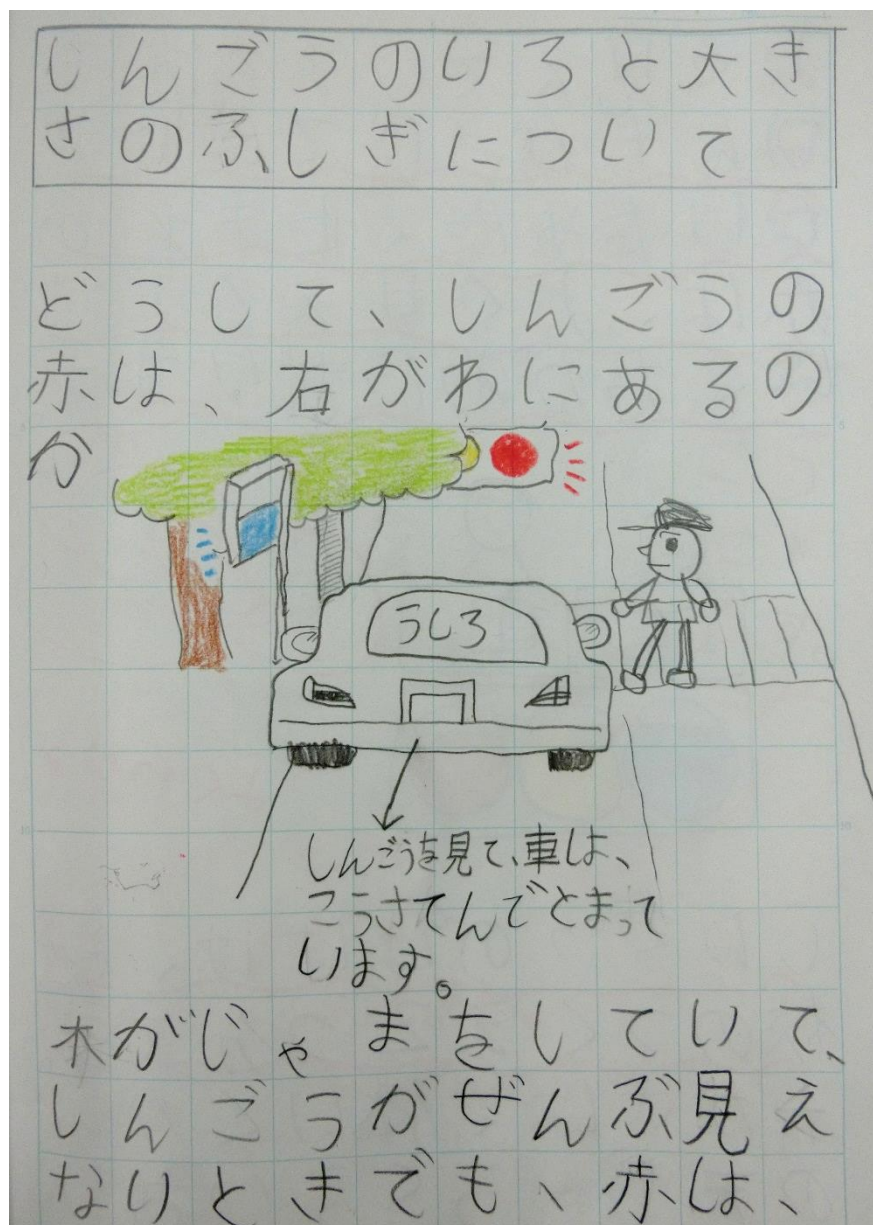 しんごうのいろと大き
さのふしぎについて
どうして、しんごうの
赤は、右がわにあるの
か
うしろ
しんごうを見て、車は、
こうさてんでとまって
います。
木がじゃまをしていて、
しんごうがぜんぶ見え
ないときでも、赤は、